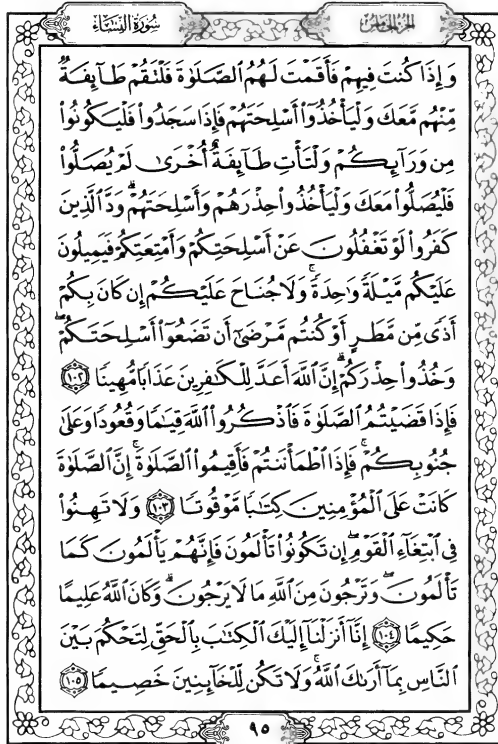 سُورَةُ النِّسَاءِ
الجُزْءُ الخَامِسُ
وَإِذَا كُنتَ فِيهِمْ فَأَقَمْتَ لَهُمُ ٱلصَّلَوٰةَ فَلْتَقُمْ طَآئِفَةٌ
مِّنْهُم مَّعَكَ وَلْيَأْخُذُوٓا۟ أَسْلِحَتَهُمْ فَإِذَا سَجَدُوا۟ فَلْيَكُونُوا۟
مِن وَرَآئِكُمْ وَلْتَأْتِ طَآئِفَةٌ أُخْرَىٰ لَمْ يُصَلُّوا۟
فَلْيُصَلُّوا۟ مَعَكَ وَلْيَأْخُذُوا۟ حِذْرَهُمْ وَأَسْلِحَتَهُمْ ۗ وَدَّ ٱلَّذِينَ
كَفَرُوا۟ لَوْ تَغْفُلُونَ عَنْ أَسْلِحَتِكُمْ وَأَمْتِعَتِكُمْ فَيَمِيلُونَ
عَلَيْكُم مَّيْلَةً وَٰحِدَةً ۚ وَلَا جُنَاحَ عَلَيْكُمْ إِن كَانَ بِكُمْ
أَذًى مِّن مَّطَرٍ أَوْ كُنتُم مَّرْضَىٰٓ أَن تَضَعُوٓا۟ أَسْلِحَتَكُمْ ۖ
وَخُذُوا۟ حِذْرَكُمْ ۗ إِنَّ ٱللَّهَ أَعَدَّ لِلْكَٰفِرِينَ عَذَابًا مُّهِينًا ١٠٢
فَإِذَا قَضَيْتُمُ ٱلصَّلَوٰةَ فَٱذْكُرُوا۟ ٱللَّهَ قِيَٰمًا وَقُعُودًا وَعَلَىٰ
جُنُوبِكُمْ ۚ فَإِذَا ٱطْمَأْنَنتُمْ فَأَقِيمُوا۟ ٱلصَّلَوٰةَ ۚ إِنَّ ٱلصَّلَوٰةَ
كَانَتْ عَلَى ٱلْمُؤْمِنِينَ كِتَٰبًا مَّوْقُوتًا ١٠٣ وَلَا تَهِنُوا۟
فِى ٱبْتِغَآءِ ٱلْقَوْمِ ۖ إِن تَكُونُوا۟ تَأْلَمُونَ فَإِنَّهُمْ يَأْلَمُونَ كَمَا
تَأْلَمُونَ ۖ وَتَرْجُونَ مِنَ ٱللَّهِ مَا لَا يَرْجُونَ ۗ وَكَانَ ٱللَّهُ عَلِيمًا
حَكِيمًا ١٠٤ إِنَّآ أَنزَلْنَآ إِلَيْكَ ٱلْكِتَٰبَ بِٱلْحَقِّ لِتَحْكُمَ بَيْنَ
ٱلنَّاسِ بِمَآ أَرَىٰكَ ٱللَّهُ ۚ وَلَا تَكُن لِّلْخَآئِنِينَ خَصِيمًا ١٠٥
٩٥